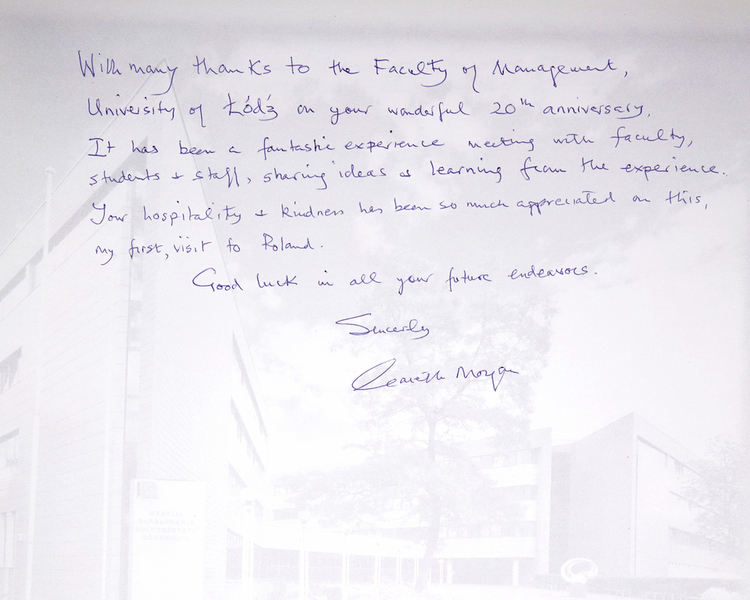 With many thanks to the Faculty of Management,
University of Łódź on your wonderful 20th anniversary.
It has been a fantastic experience meeting with faculty,
students + staff, sharing ideas & learning from the experience.
Your hospitality + kindness has been so much appreciated on this,
my first, visit to Poland.
Good luck in all your future endeavors.
Sincerly
Gareth Morgan